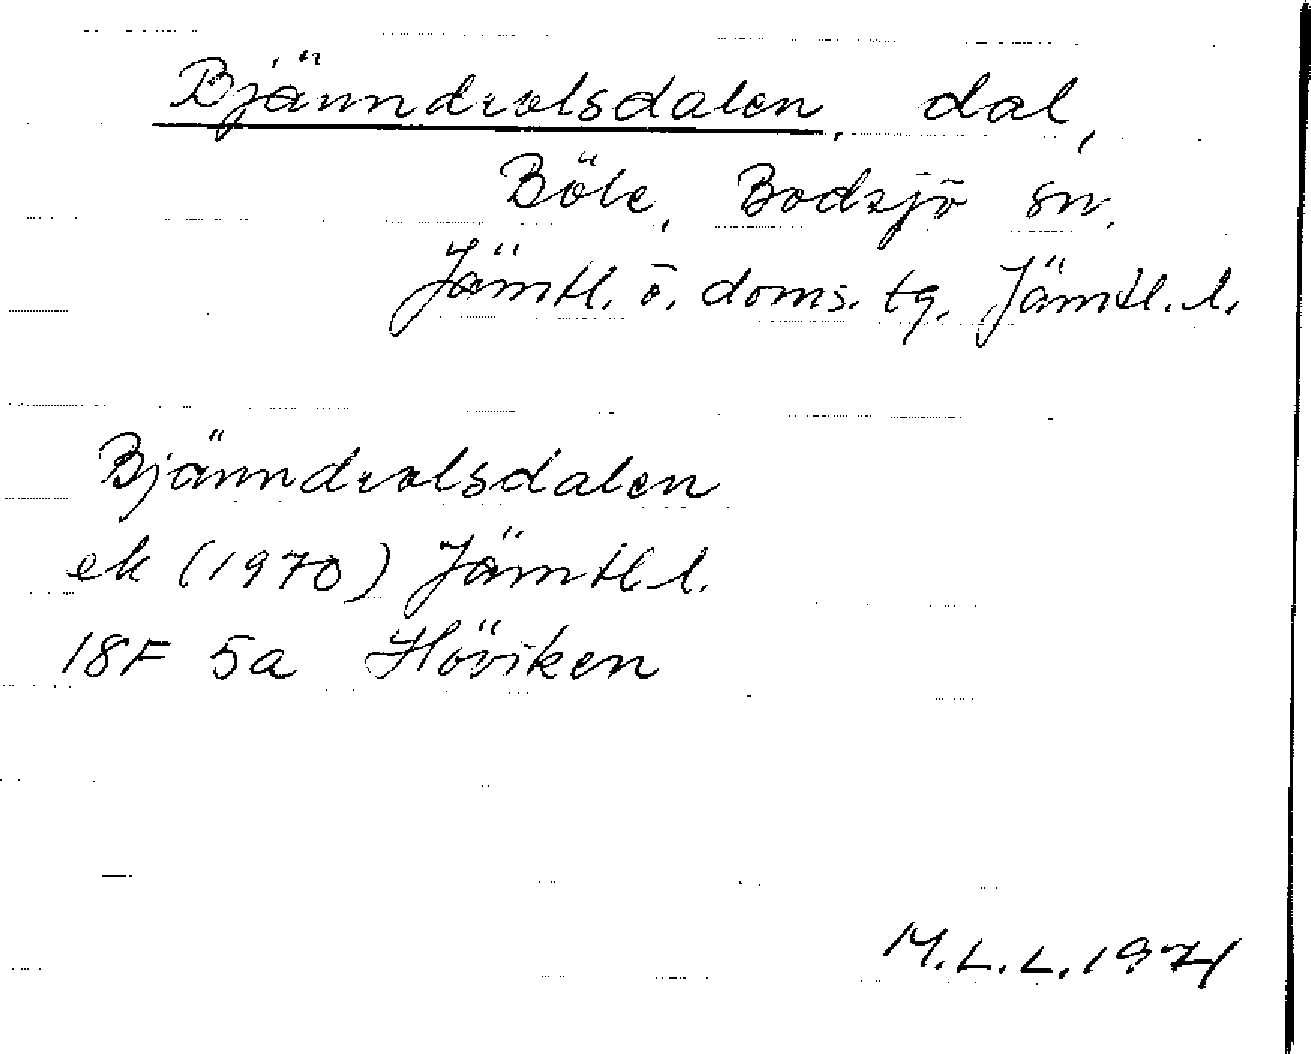 Bjänndralsdalen, dal,
Böle, Bodsjö sn.
Jämtl. ö. doms. tg. Jämtl. l.
Bjänndralsdalen
ek (1970) Jämtl l.
18F 5a Höviken
M.L.L. 1971